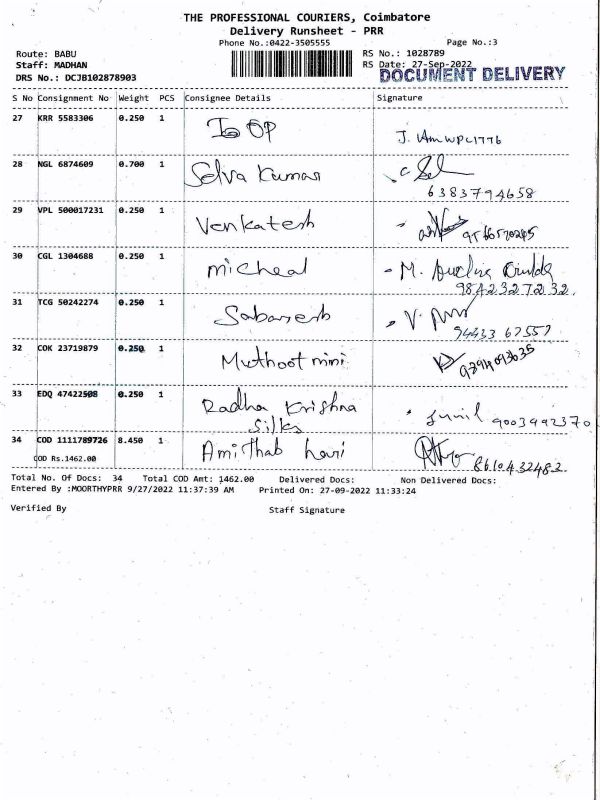 THE PROFESSIONAL COURIERS, Coimbatore
Delivery Runsheet - PRR
Phone No.:0422-3505555
Page No.:3
Route: BABU
RS No.: 1028789
Staff: MADHAN
RS Date: 27-Sep-2022
DRS No.: DCJB102878903
DOCUMENT DELIVERY
S No Consignment No Weight PCS Consignee Details Signature
27 KRR 5583306 0.250 1 IG OP
28 NGL 6874609 0.700 1 Selva Kumar
6383794658
29 VPL 500017231 0.250 1 Venkatesh
30 CGL 1304688 0.250 1 micheal - M.
9842327232.
31 TCG 50242274 0.250 1 Sabaresh
94433 67557
32 COK 23719879 0.250 1 Muthoot mini
33 EDQ 47422508 0.250 1 Radha Krishna
Silks
Sunil 9003992370
34 COD 1111789726 8.450 1 Amithab hari
8610432482
COD Rs.1462.00
Total No. Of Docs: 34 Total COD Amt: 1462.00 Delivered Docs: Non Delivered Docs:
Entered By :MOORTHYPRR 9/27/2022 11:37:39 AM Printed On: 27-09-2022 11:33:24
Verified By Staff Signature